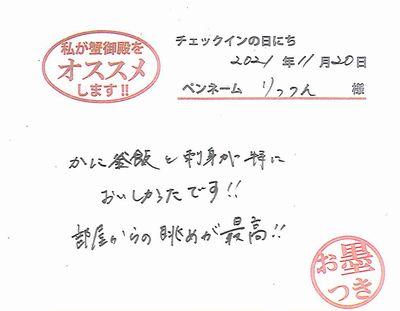 私が蟹御殿を
オススメ
します!!
チェックインの日にち
2021年11月20日
ペンネーム りっつん 様
かに釜飯と刺身が特に
おいしかったです!!
部屋からの眺めが最高!!
お墨
つき